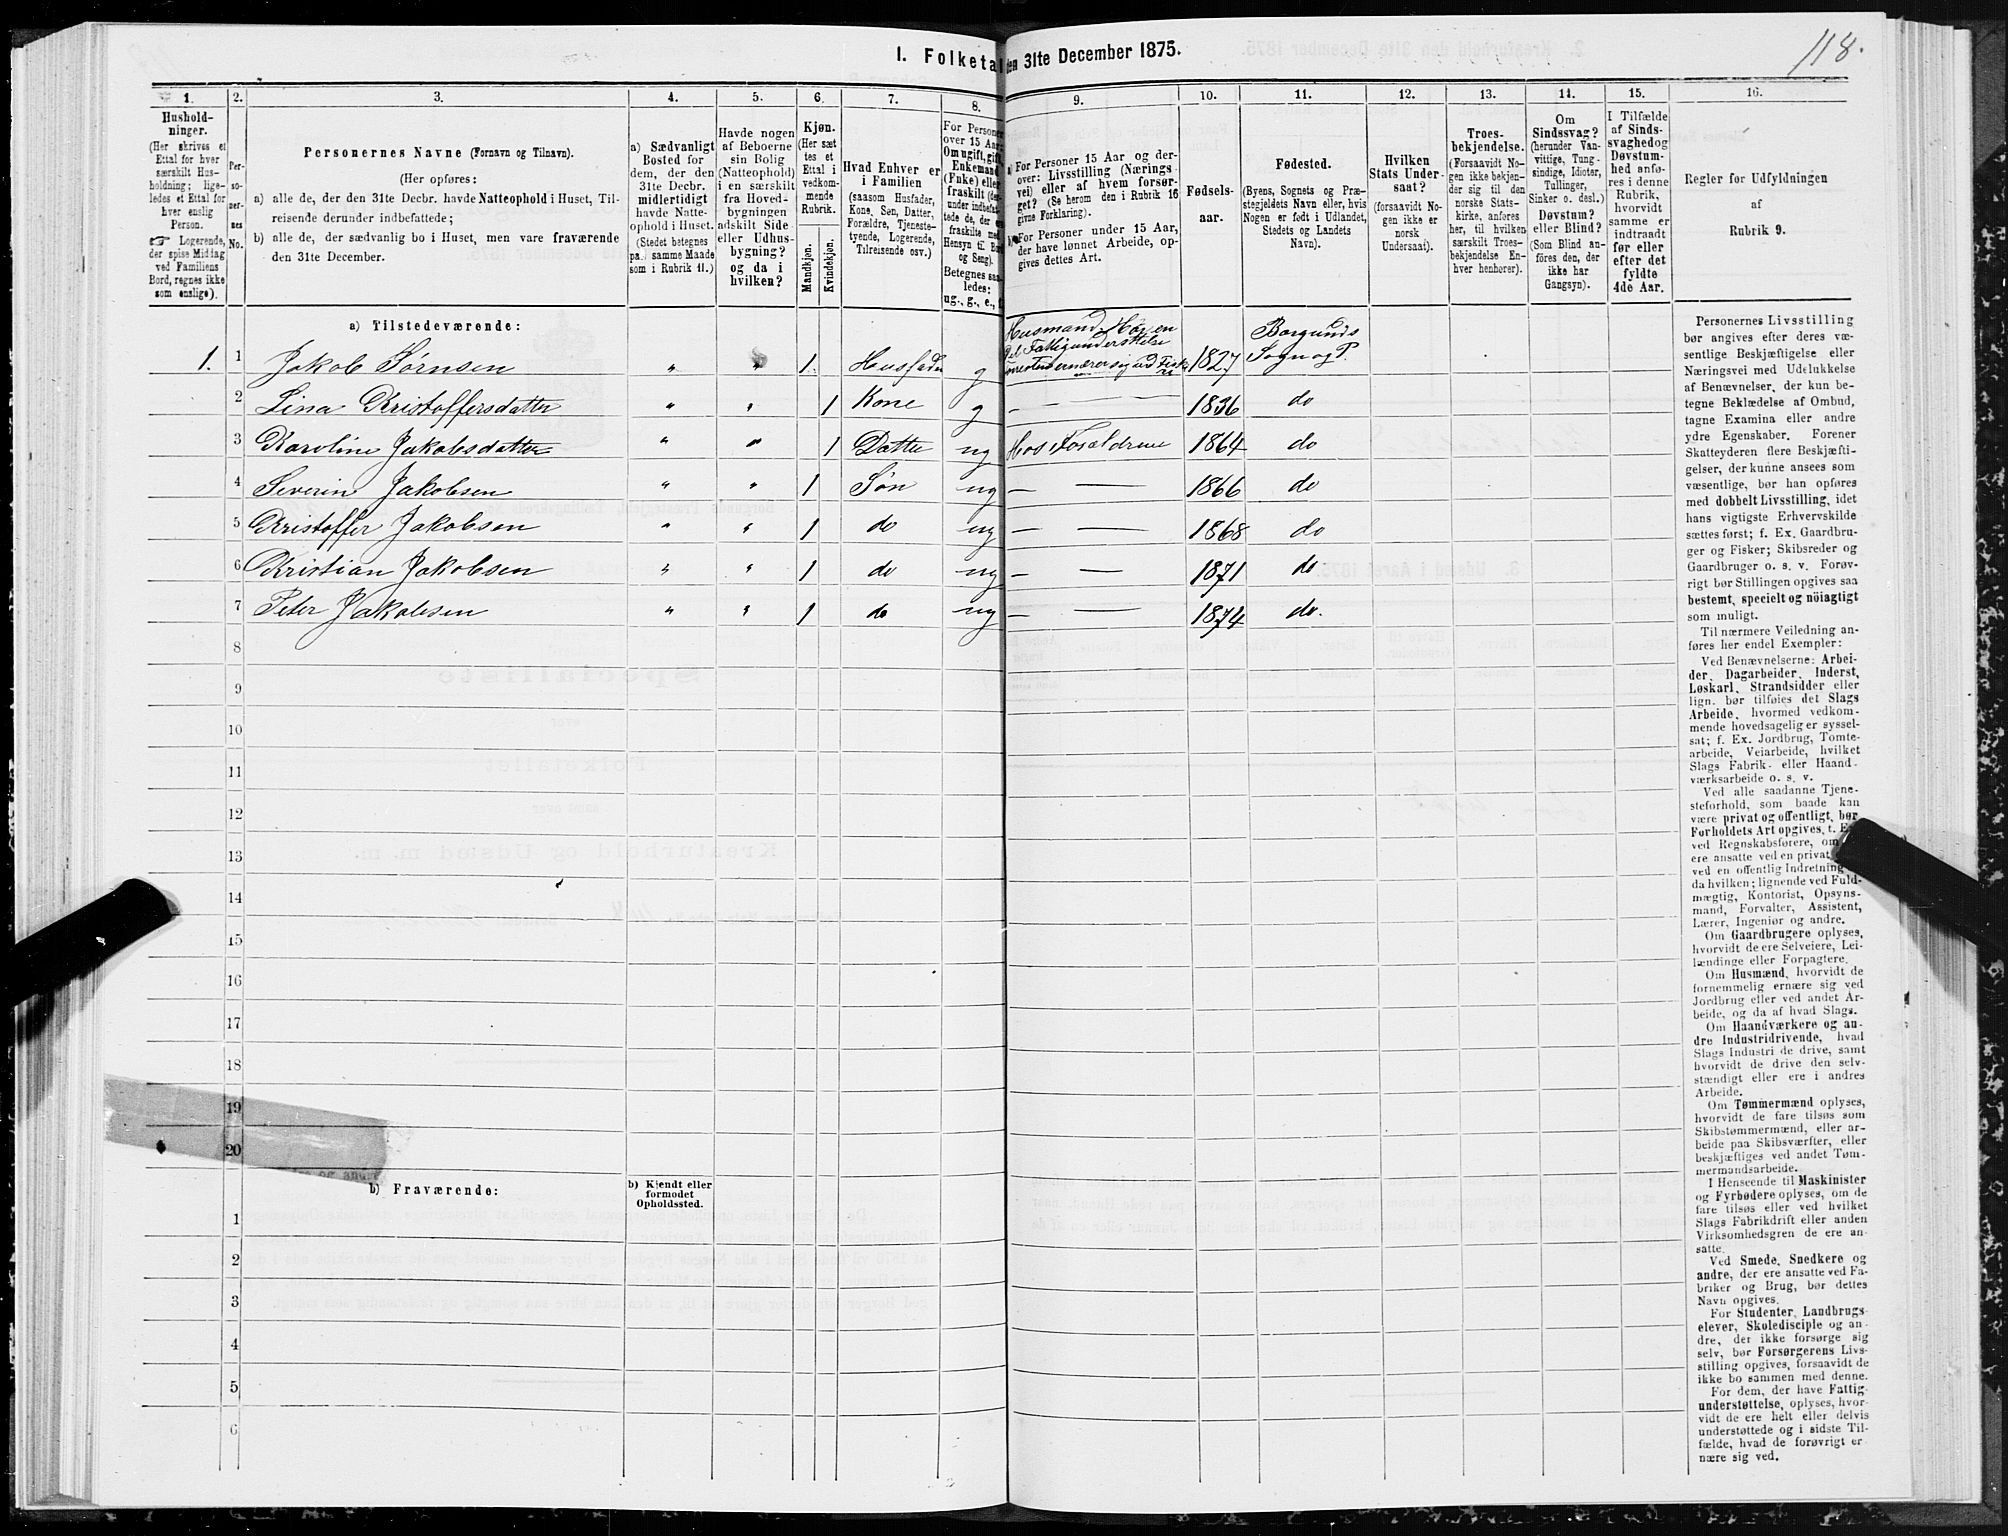 118.
I. Folketal den 31te December 1875.
1. 2. 3. 4. 5. 6. 7. 8. 9. 10. 11. 12. 13. 14. 15. 16.
Hushold-
ninger.
(Her skrives et
Ettal for hver
særskilt Hus-
holdning; lige-
ledes et Ettal for
hver enslig
Person.
☞ Logerende,
der spise Middag
ved Familiens
Bord, regnes ikke
som enslige).
Per-
so-
ner-
nes
No.
Personernes Navne (Fornavn og Tilnavn).
(Her opføres:
a) alle de, der den 31te Decbr. havde Natteophold i Huset, Til-
reisende derunder indbefattede;
b) alle de, der sædvanlig bo i Huset, men vare fraværende
den 31te December.
a) Sædvanligt
Bosted for
dem, der den
31te Decbr.
midlertidigt
havde Natte-
ophold i Huset.
(Stedet betegnes
paa samme Maade
som i Rubrik 11.)
Havde nogen
af Beboerne
sin Bolig
(Natteophold)
i en særskilt
fra Hoved-
bygningen
adskilt Side-
eller Udhus-
bygning?
og da i
hvilken?
Kjøn.
(Her sæt
tes et
Ettal i
vedkom-
mende
Rubrik.
Mandkjøn.
Kvindekjøn.
Hvad Enhver er
i Familien
(saasom Husfader,
Kone, Søn, Datter,
Forældre, Tjeneste-
tyende, Logerende,
Tilreisende osv.)
For Personer
over 15 Aar:
Om ugift, gift,
Enkemand
(Enke) eller
fraskilt (der-
under indbefat-
tede de, der ere
fraskilte med
Hensyn til Bord
og Seng).
Betegnes saa-
ledes:
ug., g., e., f.
a) For Personer 15 Aar og der-
over: Livsstilling (Nærings
vei) eller af hvem forsør-
get? (Se herom den i Rubrik 16
givne Forklaring).
b) For Personer under 15 Aar,
der have lønnet Arbeide, op-
gives dettes Art.
Fødsels-
aar.
Fødested.
(Byens, Sognets og Præ-
stegjeldets Navn eller, hvis
Nogen er født i Udlandet,
Stedets og Landets
Navn).
Hvilken
Stats Under-
saat?
(forsaavidt No-
gen ikke er
norsk
Undersaat).
Troes-
bekjendelse.
(Forsaavidt No-
gen ikke bekjen-
der sig til den
norske Stats-
kirke, anføres
her, til hvilken
særskilt Troes-
bekjendelse En-
hver henhører).
Om
Sindssvag?
(herunder Van-
vittige, Tung-
sindige, Idioter,
Tullinger,
Sinker o. desl.)
Døvstum?
eller Blind?
(Som Blind an-
føres den, der
ikke har
Gangsyn).
I Tilfælde
af Sinds-
svaghed og
Døvstum-
hed anfø-
res i denne
Rubrik,
hvorvidt
samme er
indtraadt
før eller
efter det
fyldte
4de Aar.
Regler før Udfyldningen
af
Rubrik 9.
a) Tilstedeværende:
1. 1 Jakob Sørensen " " 1. Husfader g Husmand. Har en
Del Fattigunderstøttelse
ernærer sig ved Fiske
ri 1827 Borgunds
Sogn og P.
2 Lina Kristoffersdatter " " 1 Kone g — — 1836 do
3 Karoline Jakobsdatter " " 1 Datter ug Hos Forældrene 1864 do
4 Severin Jakobsen " " 1 Søn ug — — 1866 do
5 Kristoffer Jakobsen " " 1 do ug — — 1868 do
6 Kristian Jakobsen " " 1 do ug — — 1871 do
7 Peter Jakobsen " " 1 do ug — — 1874 do.
8
9
10
11
12
13
14
15
16
17
18
19
20
b) Fraværende:
b) Kjendt eller
formodet
Opholdssted.
1
2
3
4
5
6
Personernes Livsstilling
bør angives efter deres væ-
sentlige Beskjæftigelse eller
Næringsvei med Udelukkelse
af Benævnelser, der kun be-
tegne Beklædelse af Ombud,
tagne Examina eller andre
ydre Egenskaber. Forener
Skatteyderen flere Beskjæfti-
gelser, der kunne ansees som
væsentlige, bør han opføres
med dobbelt Livsstilling, idet
hans vigtigste Erhvervskilde
sættes først; f. Ex. Gaardbru-
ger og Fisker; Skibsreder og
Gaardbruger o. s. v. Forøv-
rigt bør Stillingen opgives saa
bestemt, specielt og nöiagtigt
som muligt.
Til nærmere Veiledning an-
føres her endel Exempler:
Ved Benævnelserne: Arbei-
der, Dagarbeider, Inderst,
Løskarl, Strandsidder eller
lign. bør tilføies det Slags
Arbeide, hvormed vedkom-
mende hovedsagelig er syssel-
sat; f. Ex. Jordbrug, Tomte-
arbeide, Veiarbeide, hvilket
Slags Fabrik- eller Haand-
værksarbeide o. s. v.
Ved alle saadanne Tjene-
steforhold, som baade kan
være privat og offentligt, bør
Forholdets Art opgives, t. E
ved Regnskabsførere, om
ere ansatte ved en privat
ved en offentlig Indretning
da hvilken; lignende ved Fuld-
mægtig, Kontorist, Opsyns-
mand, Forvalter, Assistent,
Lærer, Ingeniør og andre.
Om Gaardbrugere oplyses,
hvorvidt de ere Selveiere, Lei-
lændinge eller Forpagtere.
Om Husmænd, hvorvidt de
fornemmelig ernære sig ved
Jordbrug eller ved andet Ar-
beide, og da af hvad Slags.
Om Haandværkere og an-
dre Industridrivende, hvad
Slags Industri de drive, samt
hvorvidt de drive den selv-
stændigt eller ere i andres
Arbeide.
Om Tømmermænd oplyses,
hvorvidt de fare tilsøs som
Skibstømmermænd, eller ar-
beide paa Skibsværfter, eller
beskjæftiges ved andet Tøm-
mermandsarbeide.
I Henseende til Maskinister
og Fyrbødere oplyses, om de
fare tilsøs eller ved hvilket
Slags Fabrikdrift eller anden
Virksomhedsgren de ere an-
satte.
Ved Smede, Snedkere og
andre, der ere ansatte ved Fa-
briker og Brug, bør dettes
Navn opgives.
For Studenter, Landbrugs
elever, Skoledisciple og an-
dre, der ikke forsørge sig
selv, bør Forsørgerens Livs-
stilling opgives, forsaavidt de
ikke bo sammen med denne.
For dem, der have Fattig-
understøttelse, oplyses, hvor-
vidt de ere helt eller delvis
understøttede og i sidste Til-
fælde, hvad de forøvrigt er
nære sig ved.